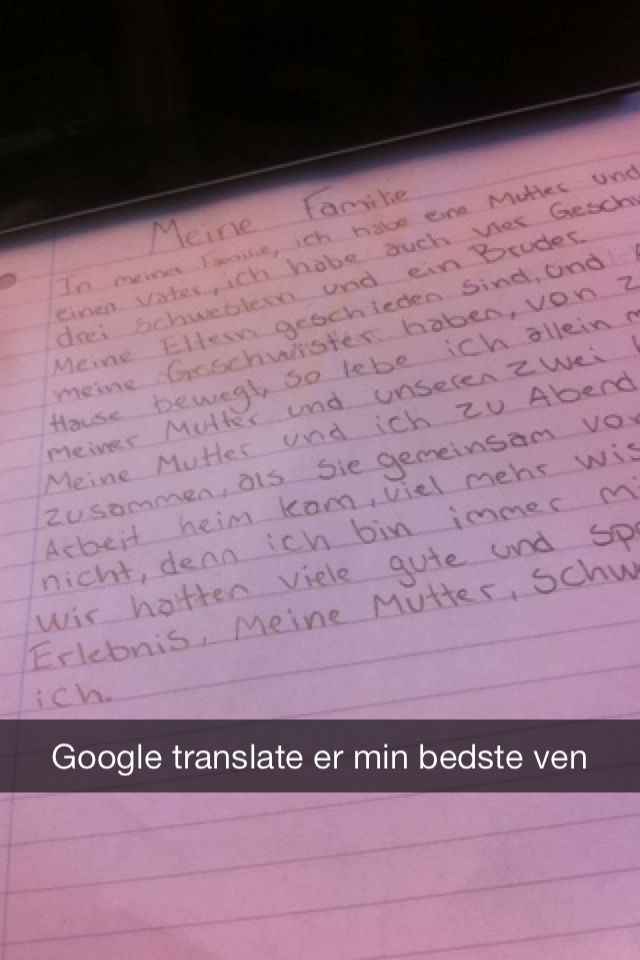 Meine Familie
In meiner Familie, ich habe eine Mutter und
einen Vater, ich habe auch vier Geschw
drei Schwestern und ein Bruder.
Meine Eltern geschieden sind, und
meine Geschwister haben, von z
Hause bewegt, so lebe ich allein m
meiner Mutter und unseren zwei
Meine Mutter und ich zu Abend
zusammen, als sie gemeinsam vo
Arbeit heim kam, viel mehr wis
nicht, denn ich bin immer mi
Wir hatten viele gute und sp
Erlebnis, Meine Mutter, Schw
ich.
Google translate er min bedste ven